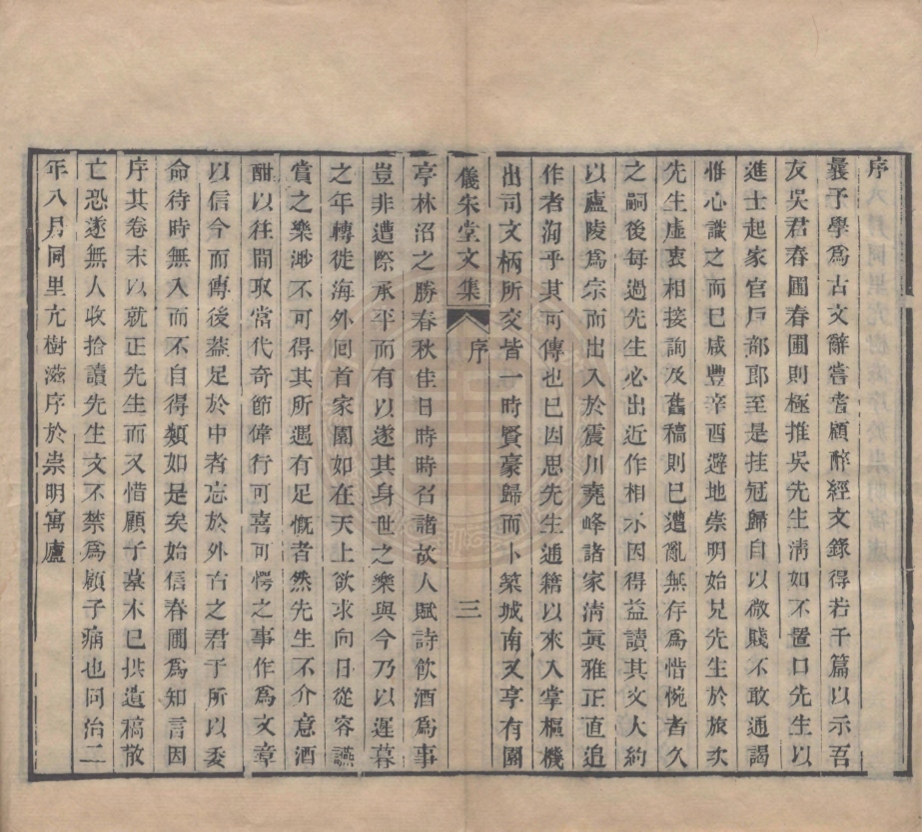 序
曩予學爲古文辭嘗耆顧醉經文錄得若干篇以示吾
友吳君春圃春圃則極推吳先生淸如不置口先生以
進士起家官戶部郎至是挂冠歸自以微賤不敢通謁
惟心識之而已咸豐辛酉避地崇明始見先生於旅次
先生虛衷相接詢及舊稿則已遭亂無存爲惜惋者久
之嗣後每過先生必出近作相示因得益讀其文大約
以廬陵爲宗而出入於震川堯峰諸家淸眞雅正直追
作者洵乎其可傳也已因思先生通籍以來入掌樞機
出司文柄所交皆一時賢豪歸而卜築城南又享有園
儀宋堂文集
序
三
亭林沼之勝春秋佳日時時召諸故人賦詩飮酒爲事
豈非遭際承平而有以遂其身世之樂與今乃以遲暮
之年轉徙海外回首家園如在天上欲求向日從容讌
賞之樂渺不可得其所遇有足慨者然先生不介意酒
酣以往間取當代奇節偉行可喜可愕之事作爲文章
以信今而傳後葢足於中者忘於外古之君子所以委
命待時無入而不自得類如是矣始信春圃爲知言因
序其卷末以就正先生而又惜顧子墓木已拱遺稿散
亡恐遂無人收拾讀先生文不禁爲顧子痛也同治二
年八月同里亢樹滋序於崇明寓廬